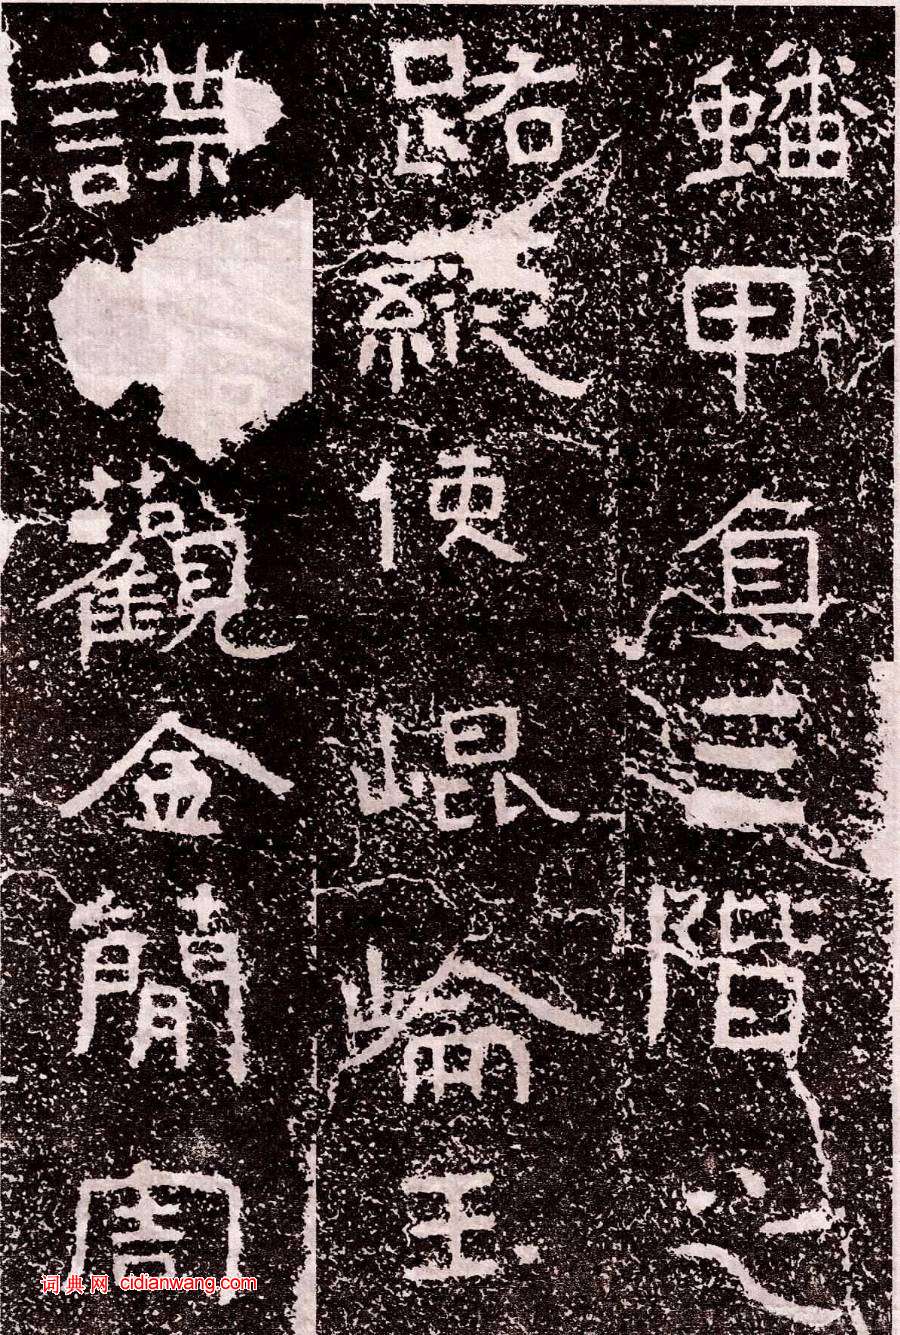 蟠甲負三階之
路縱使崐崘玉
諜觀金簡周
词典网 cidianwang.com